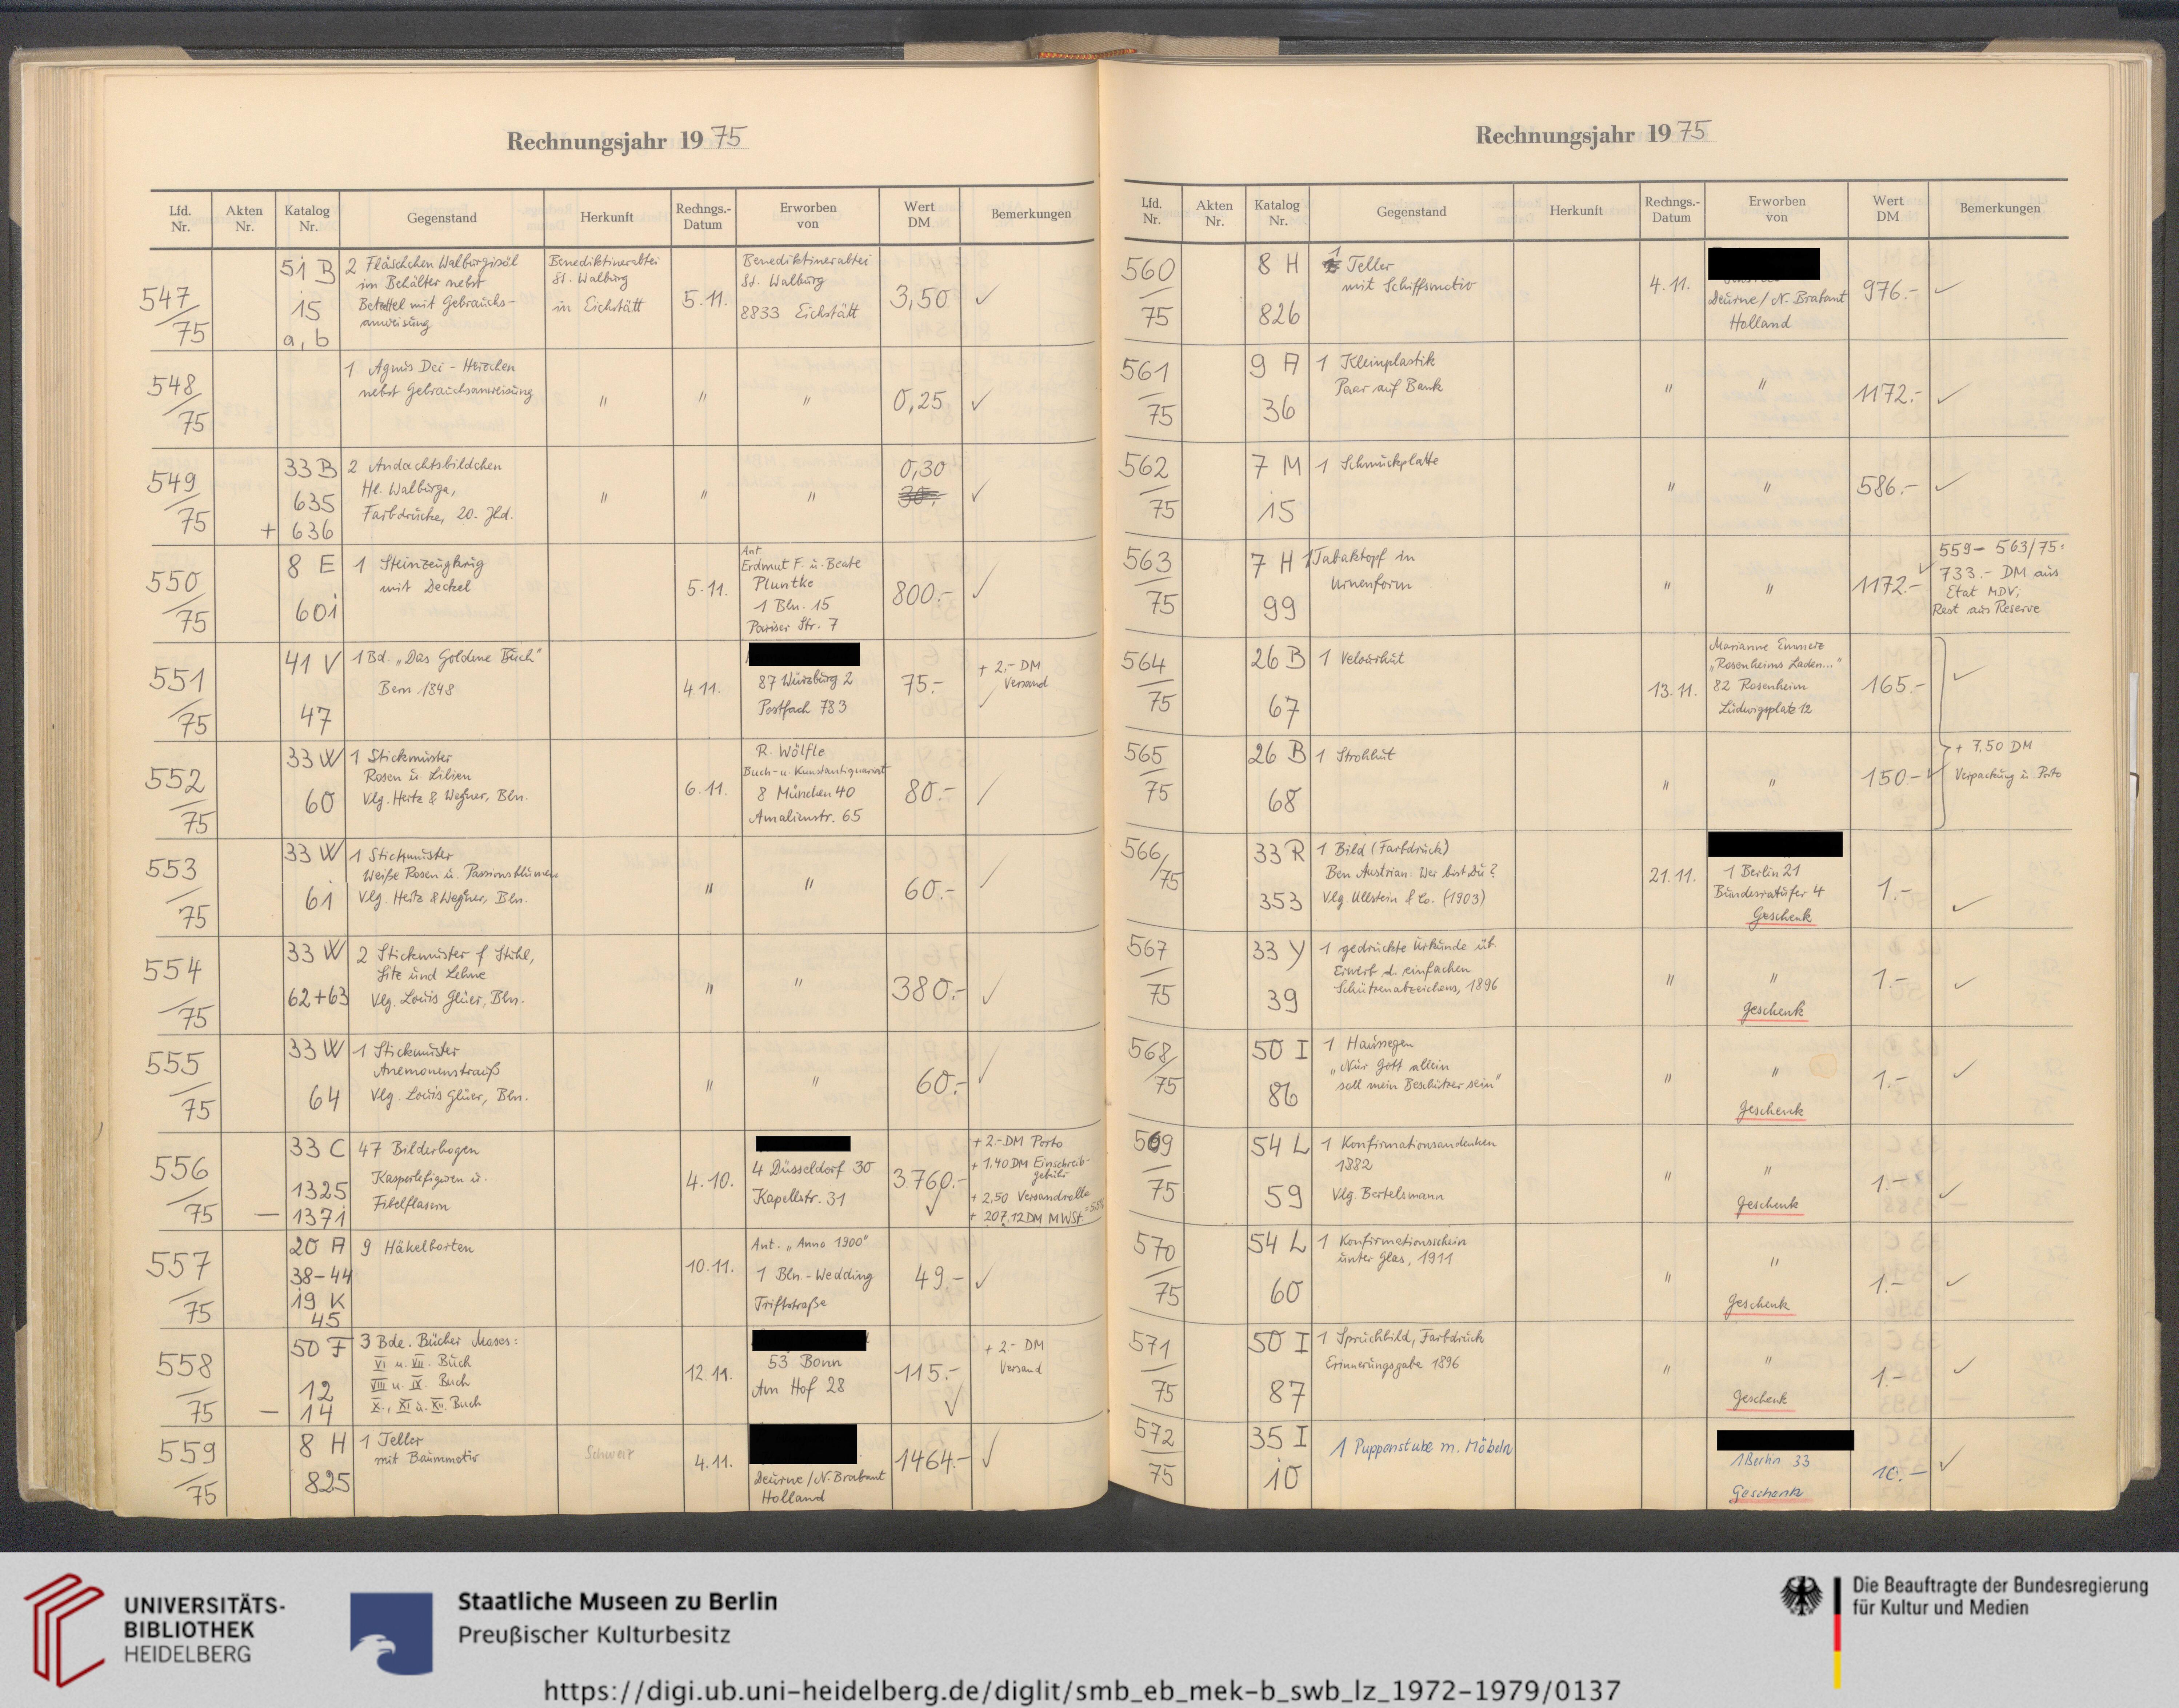 Rechnungsjahr 1975
Lfd. Nr.
Akten Nr.
Katalog Nr.
Gegenstand
Herkunft
Rechngs.-Datum
Erworben von
Wert DM
Bemerkungen
547/75
51 B
15
a, b
2 Fläschchen Walburgisöl
im Behälter nebst
Beizettel mit Gebrauchs-
anweisung
Benediktinerabtei
St. Walburg
in Eichstätt
5.11.
Benediktinerabtei
St. Walburg
8833 Eichstätt
3,50 ✓
548/75
1 Agnus Dei - Herzchen
nebst Gebrauchsanweisung
"
"
"
0,25 ✓
549/75
33 B
635
+ 636
2 Andachtsbildchen
Hl. Walburga,
Farbdrucke, 20. Jhd.
"
"
"
0,30
30.- ✓
550/75
8 E
601
1 Steinzeugkrug
mit Deckel
5.11.
Ant
Erdmut F. u. Beate
Pluntke
1 Bln. 15
Pariser Str. 7
800.- ✓
551/75
41 V
47
1 Bd. „Das Goldene Buch"
Bern 1848
4.11.
87 Würzburg 2
Postfach 783
75.-
+ 2.- DM
Versand
✓
552/75
33 W
60
1 Stickmuster
Rosen u. Lilien
Vlg. Hertz & Wegner, Bln.
6.11.
R. Wölfle
Buch- u. Kunstantiquariat
8 München 40
Amalienstr. 65
80.- ✓
553/75
33 W
61
1 Stickmuster
Weiße Rosen u. Passionsblumen
Vlg. Hertz & Wegner, Bln.
"
"
60.- ✓
554/75
33 W
62+63
2 Stickmuster f. Stuhl,
Sitz und Lehne
Vlg. Louis Glüer, Bln.
"
"
380.- ✓
555/75
33 W
64
1 Stickmuster
Anemonenstrauß
Vlg. Louis Glüer, Bln.
"
"
60.- ✓
556/75
33 C
1325
– 1371
47 Bilderbogen
Kasperlefiguren u.
4.10.
4 Düsseldorf 30
Kapellstr. 31
3760.- ✓
+ 2.- DM Porto
+ 1,40 DM Einschreib-
gebühr
+ 2,50 Versandrolle
+ 207,12 DM MWSt
557/75
20 A
38-44
19 K
45
9 Häkelborten
10.11.
Ant. „Anno 1900"
1 Bln.-Wedding
Triftstraße
49.- ✓
558/75
50 F
12
– 14
3 Bde. Bücher Moses:
VI u. VII. Buch
VIII u. IX. Buch
X., XI u. XII. Buch
12.11.
53 Bonn
Am Hof 28
115.- ✓
+ 2.- DM
Versand
559/75
8 H
825
1 Teller
mit Baummotiv
Schweiz
4.11.
Deurne / N. Brabant
Holland
1464.- ✓
Rechnungsjahr 1975
Lfd. Nr.
Akten Nr.
Katalog Nr.
Gegenstand
Herkunft
Rechngs.-Datum
Erworben von
Wert DM
Bemerkungen
560/75
8 H
826
1 Teller
mit Schiffsmotiv
4.11.
Deurne / N. Brabant
Holland
976.- ✓
561/75
9 A
36
1 Kleinplastik
Paar auf Bank
"
"
1172.- ✓
562/75
7 M
15
1 Schmuckplatte
"
"
586.- ✓
563/75
7 H
99
1 Tabaktopf in
Urnenform
"
"
1172.- ✓
559 - 563/75:
733.- DM aus
Etat MDV,
Rest aus Reserve
564/75
26 B
67
1 Velourhut
13.11.
Marianne Emmerz
„Rosenheims Laden..."
82 Rosenheim
Ludwigsplatz 12
165.- ✓
565/75
26 B
68
1 Strohhut
"
"
150.- ✓
+ 7.50 DM
Verpackung u. Porto
566/75
33 R
353
1 Bild (Farbdruck)
Ben Austrian: Wer bist Du?
Vlg. Ullstein & Co. (1903)
21.11.
1 Berlin 21
Bundesratufer 4
Geschenk
1.- ✓
567/75
33 Y
39
1 gedruckte Urkunde üb.
Erwerb d. einfachen
Schützenabzeichens, 1896
"
"
Geschenk
1.- ✓
568/75
50 I
86
1 Haussegen
„Nur Gott allein
soll mein Beschützer sein"
"
"
Geschenk
1.- ✓
569/75
54 L
59
1 Konfirmationsandenken
1882
Vlg Bertelsmann
"
"
Geschenk
1.- ✓
570/75
54 L
60
1 Konfirmationsschein
unter Glas, 1911
"
"
Geschenk
1.- ✓
571/75
50 I
87
1 Spruchbild, Farbdruck
Erinnerungsgabe 1896
"
"
Geschenk
1.- ✓
572/75
35 I
10
1 Puppenstube m. Möbeln
1 Berlin 33
Geschenk
10.- ✓
UNIVERSITÄTS-
BIBLIOTHEK
HEIDELBERG
Staatliche Museen zu Berlin
Preußischer Kulturbesitz
Die Beauftragte der Bundesregierung
für Kultur und Medien
https://digi.ub.uni-heidelberg.de/diglit/smb_eb_mek-b_swb_lz_1972-1979/0137